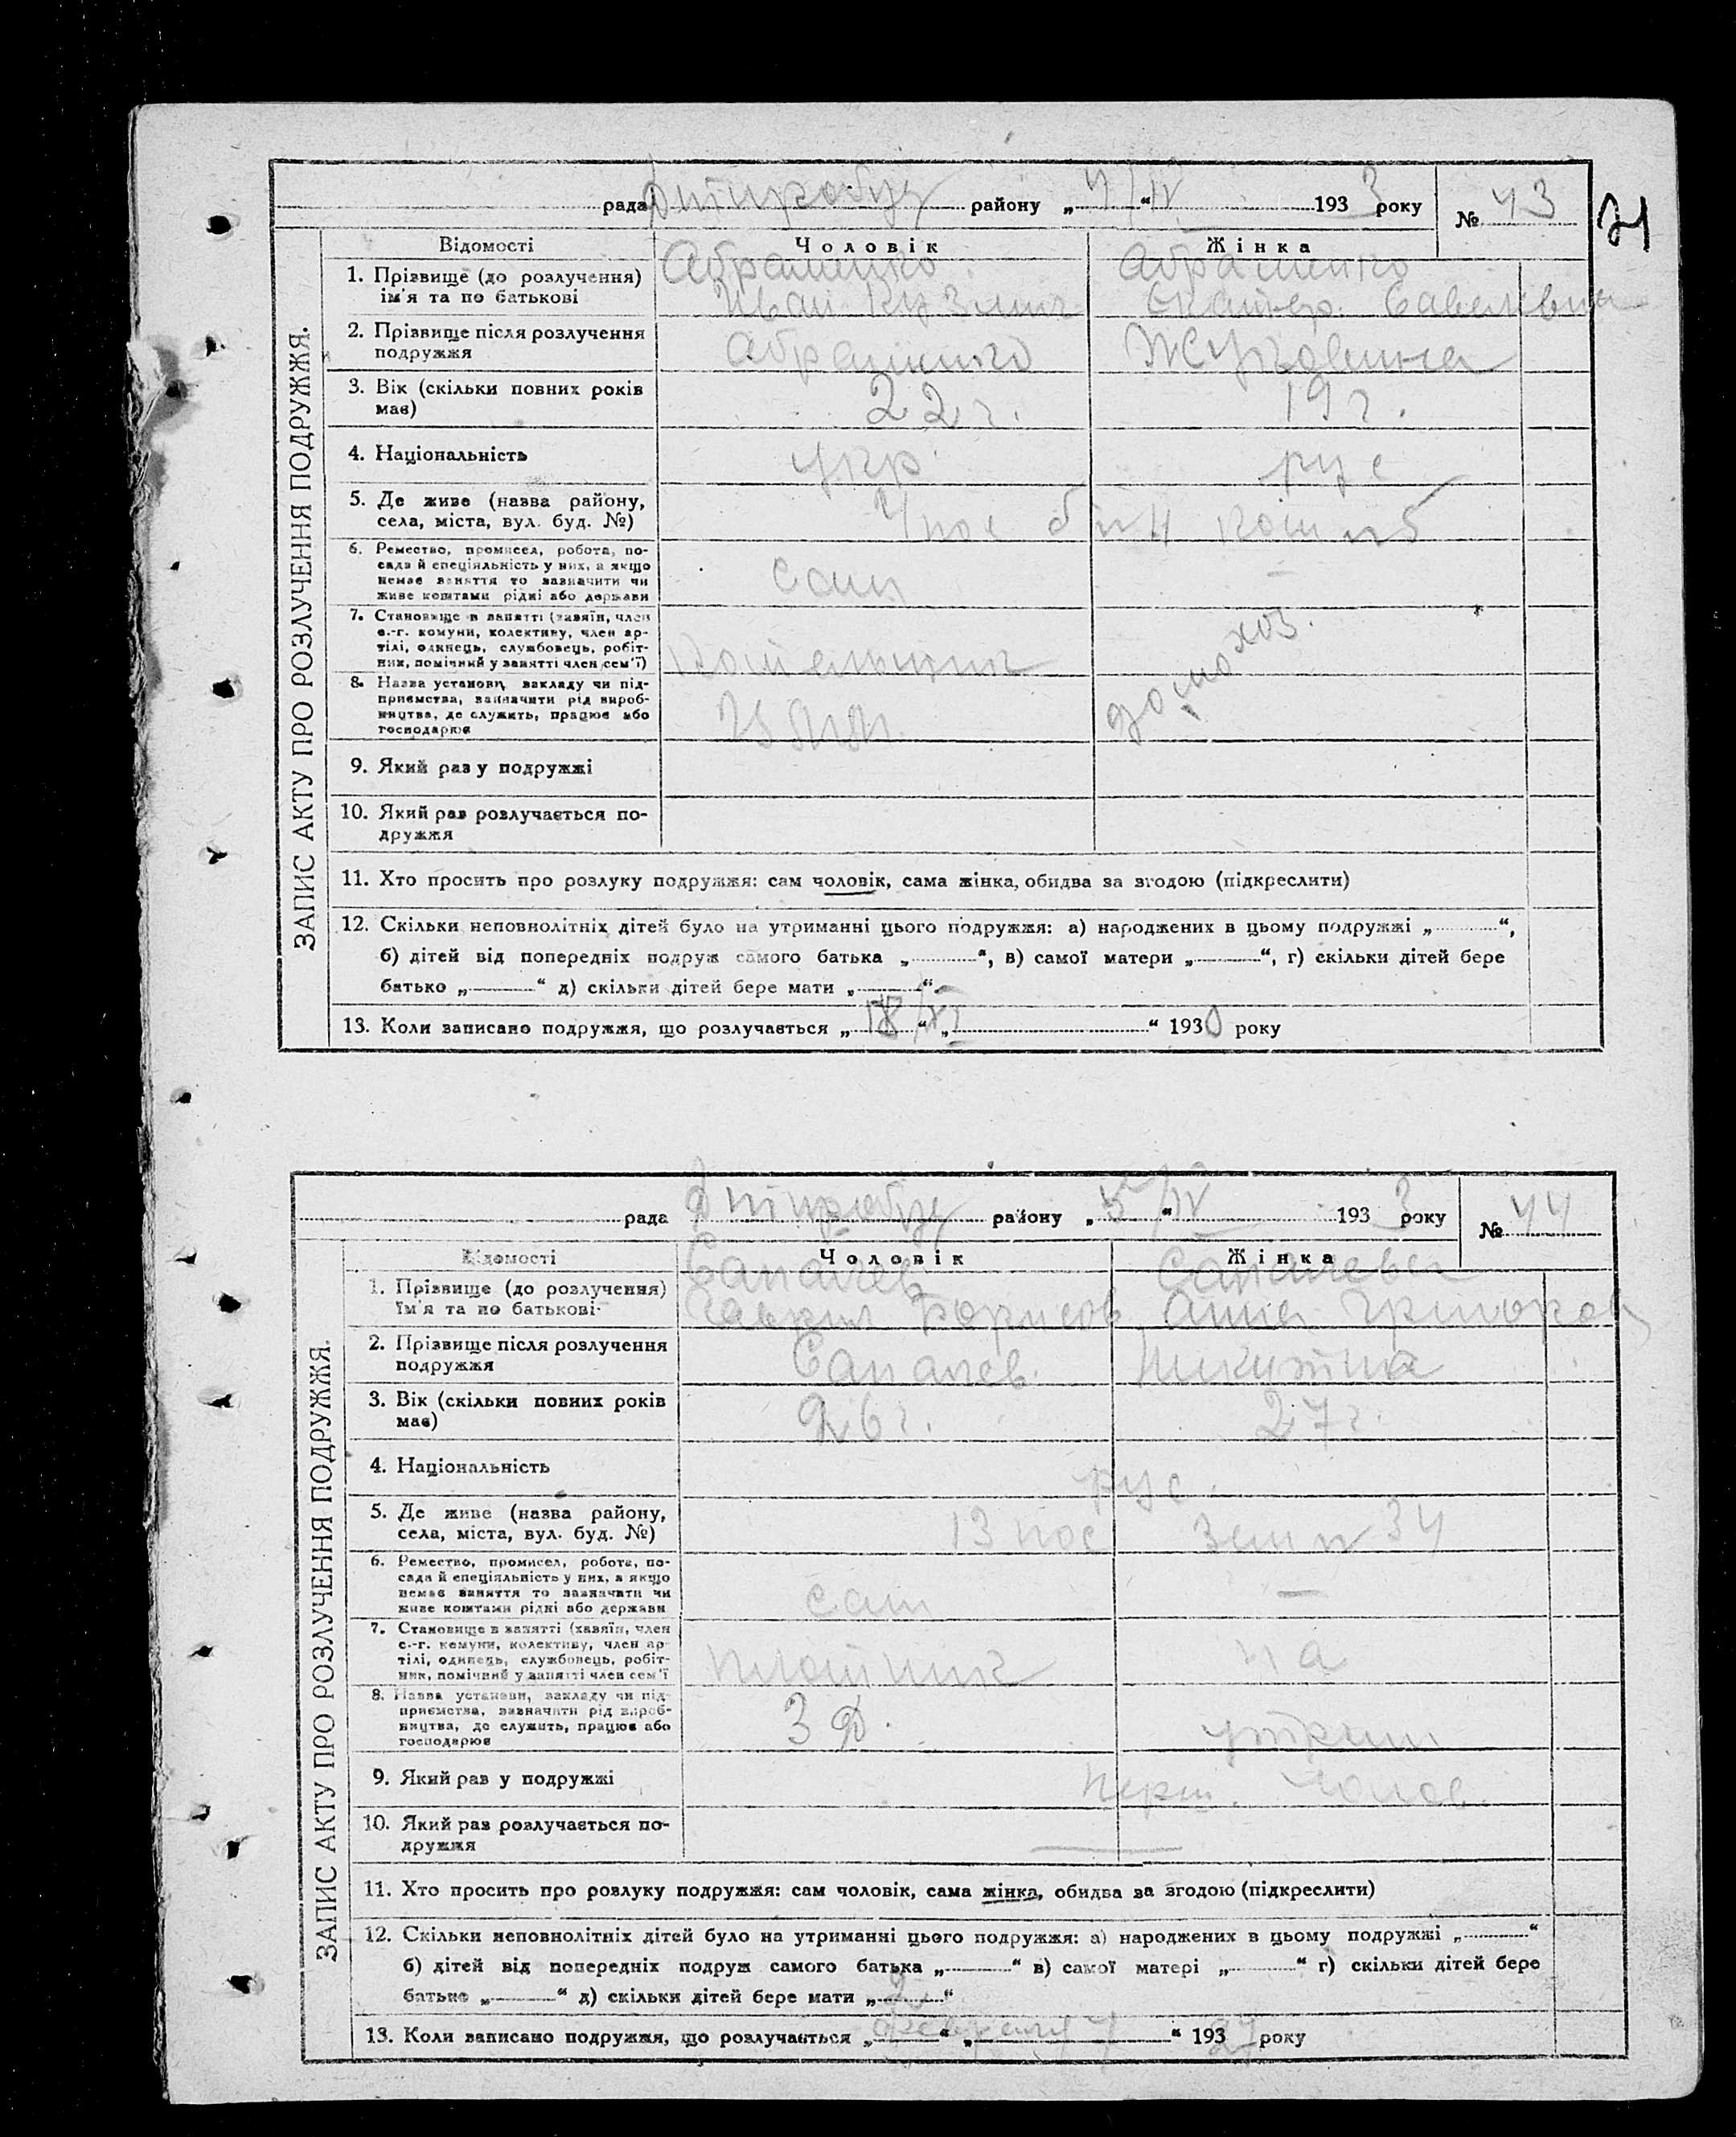 рада Дніпробуд району „4/IV“ 1933 року № 43
21
ЗАПИС АКТУ ПРО РОЗЛУЧЕННЯ ПОДРУЖЖЯ.
Відомості Чоловік Жінка
1. Прізвище (до розлучення) Абраменко Абраменко
ім'я та по батькові Иван Кузмич Екатер. Савельевна
2. Прізвище після розлучення
подружжя Абраменко
3. Вік (скільки повних років
має) 22 г. 19 г.
4. Національність укр. рус
5. Де живе (назва району,
села, міста, вул. буд. №) 4 пос
6. Ремество, промисел, робота, по-
сада й спеціяльність у них, а якщо
немає заняття то зазначити чи
живе коштами рідні або держави сам –
7. Становище в занятті (хазяїн, член
с.-г. комуни, колективу, член ар-
тілі, одинець, службовець, робіт-
ник, помічний у занятті член сем'ї) котельщик домохоз.
8. Назва установи, закладу чи під-
приємства, зазначити рід вироб-
ництва, де служить, працює або
господарює
9. Який раз у подружжі
10. Який раз розлучається по-
дружжя
11. Хто просить про розлуку подружжя: сам чоловік, сама жінка, обидва за згодою (підкреслити)
12. Скільки неповнолітніх дітей було на утриманні цього подружжя: а) народжених в цьому подружжі „ “,
б) дітей від попередніх подруж самого батька „ “, в) самої матери „ “, г) скільки дітей бере
батько „ “ д) скільки дітей бере мати „ “
13. Коли записано подружжя, що розлучається „ “ „ /XI “ 1930 року
рада Дніпробуд району „5/IV“ 1933 року № 44
ЗАПИС АКТУ ПРО РОЗЛУЧЕННЯ ПОДРУЖЖЯ.
Відомості Чоловік Жінка
1. Прізвище (до розлучення) Сапачев Сапачева
Ім'я та по батькові Гаврил Борисов Анна Григоров
2. Прізвище після розлучення
подружжя Сапачев Никитина
3. Вік (скільки повних років
має) 26 г. 27 г.
4. Національність рус.
5. Де живе (назва району,
села, міста, вул. буд. №) 13 пос Зем № 34
6. Ремество, промисел, робота, по-
сада й спеціяльність у них, а якщо
немає заняття то зазначити чи
живе коштами рідні або держави сам –
7. Становище в занятті (хазяїн, член
с.-г. комуни, колективу, член ар-
тілі, одинець, службовець, робіт-
ник, помічний у занятті член сем'ї плотник на
8. Назва установи, закладу чи під-
приємства, зазначити рід вироб-
ництва, де служить, працює або
господарює З Ф. утрим
9. Який раз у подружжі перш.
10. Який раз розлучається по-
дружжя
11. Хто просить про розлуку подружжя: сам чоловік, сама жінка, обидва за згодою (підкреслити)
12. Скільки неповнолітніх дітей було на утриманні цього подружжя: а) народжених в цьому подружжі „ “
б) дітей від попередніх подруж самого батька „ “ в) самої матері „ “ г) скільки дітей бере
батько „ “ д) скільки дітей бере мати „2“
13. Коли записано подружжя, що розлучається „ “ „ “ 193 27 року